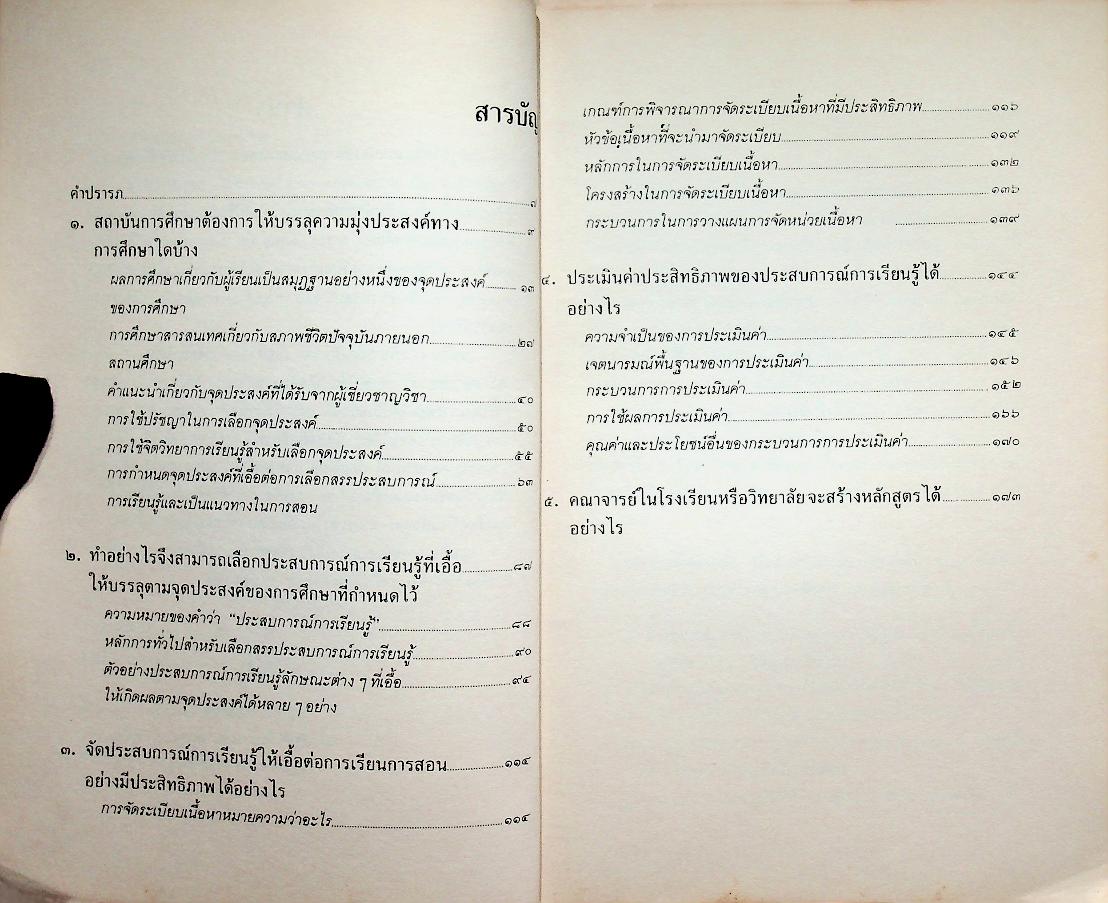 สารบัญ
คำปรารภ ๗
๑. สถาบันการศึกษาต้องการให้บรรลุความมุ่งประสงค์ทาง ๙
การศึกษาใดบ้าง
ผลการศึกษาเกี่ยวกับผู้เรียนเป็นสมุฏฐานอย่างหนึ่งของจุดประสงค์ ๑๓
ของการศึกษา
การศึกษาสารสนเทศเกี่ยวกับสภาพชีวิตปัจจุบันภายนอก ๒๗
สถานศึกษา
คำแนะนำเกี่ยวกับจุดประสงค์ที่ได้รับจากผู้เชี่ยวชาญวิชา ๔๐
การใช้ปรัชญาในการเลือกจุดประสงค์ ๕๐
การใช้จิตวิทยาการเรียนรู้สำหรับเลือกจุดประสงค์ ๕๕
การกำหนดจุดประสงค์ที่เอื้อต่อการเลือกสรรประสบการณ์ ๖๓
การเรียนรู้และเป็นแนวทางในการสอน
๒. ทำอย่างไรจึงสามารถเลือกประสบการณ์การเรียนรู้ที่เอื้อ ๘๗
ให้บรรลุตามจุดประสงค์ของการศึกษาที่กำหนดไว้
ความหมายของคำว่า “ประสบการณ์การเรียนรู้” ๘๘
หลักการทั่วไปสำหรับเลือกสรรประสบการณ์การเรียนรู้ ๙๐
ตัวอย่างประสบการณ์การเรียนรู้ลักษณะต่าง ๆ ที่เอื้อ ๙๔
ให้เกิดผลตามจุดประสงค์ได้หลาย ๆ อย่าง
๓. จัดประสบการณ์การเรียนรู้ให้เอื้อต่อการเรียนการสอน ๑๑๔
อย่างมีประสิทธิภาพได้อย่างไร
การจัดระเบียบเนื้อหาหมายความว่าอะไร ๑๑๔
เกณฑ์การพิจารณาการจัดระเบียบเนื้อหาที่มีประสิทธิภาพ ๑๑๖
หัวข้อเนื้อหาที่จะนำมาจัดระเบียบ ๑๑๙
หลักการในการจัดระเบียบเนื้อหา ๑๓๒
โครงสร้างในการจัดระเบียบเนื้อหา ๑๓๖
กระบวนการในการวางแผนการจัดหน่วยเนื้อหา ๑๓๙
๔. ประเมินค่าประสิทธิภาพของประสบการณ์การเรียนรู้ได้ ๑๔๔
อย่างไร
ความจำเป็นของการประเมินค่า ๑๔๕
เจตนารมณ์พื้นฐานของการประเมินค่า ๑๔๖
กระบวนการการประเมินค่า ๑๕๒
การใช้ผลการประเมินค่า ๑๖๖
คุณค่าและประโยชน์อื่นของกระบวนการการประเมินค่า ๑๗๐
๕. คณาจารย์ในโรงเรียนหรือวิทยาลัยจะสร้างหลักสูตรได้ ๑๗๓
อย่างไร